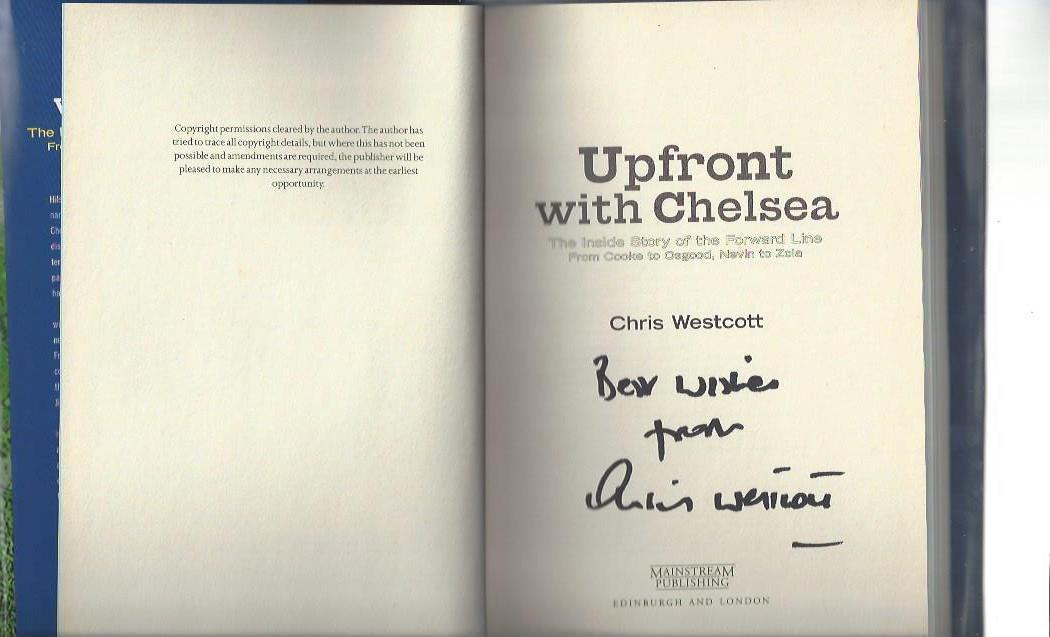 The
Fr
Copyright permissions cleared by the author. The author has
tried to trace all copyright details, but where this has not been
possible and amendments are required, the publisher will be
pleased to make any necessary arrangements at the earliest
opportunity.
Upfront
with Chelsea
The Inside Story of the Forward Line
From Cooke to Osgood, Nevin to Zola
Chris Westcott
Best wishes
from
Chris Westcott
MAINSTREAM
PUBLISHING
EDINBURGH AND LONDON